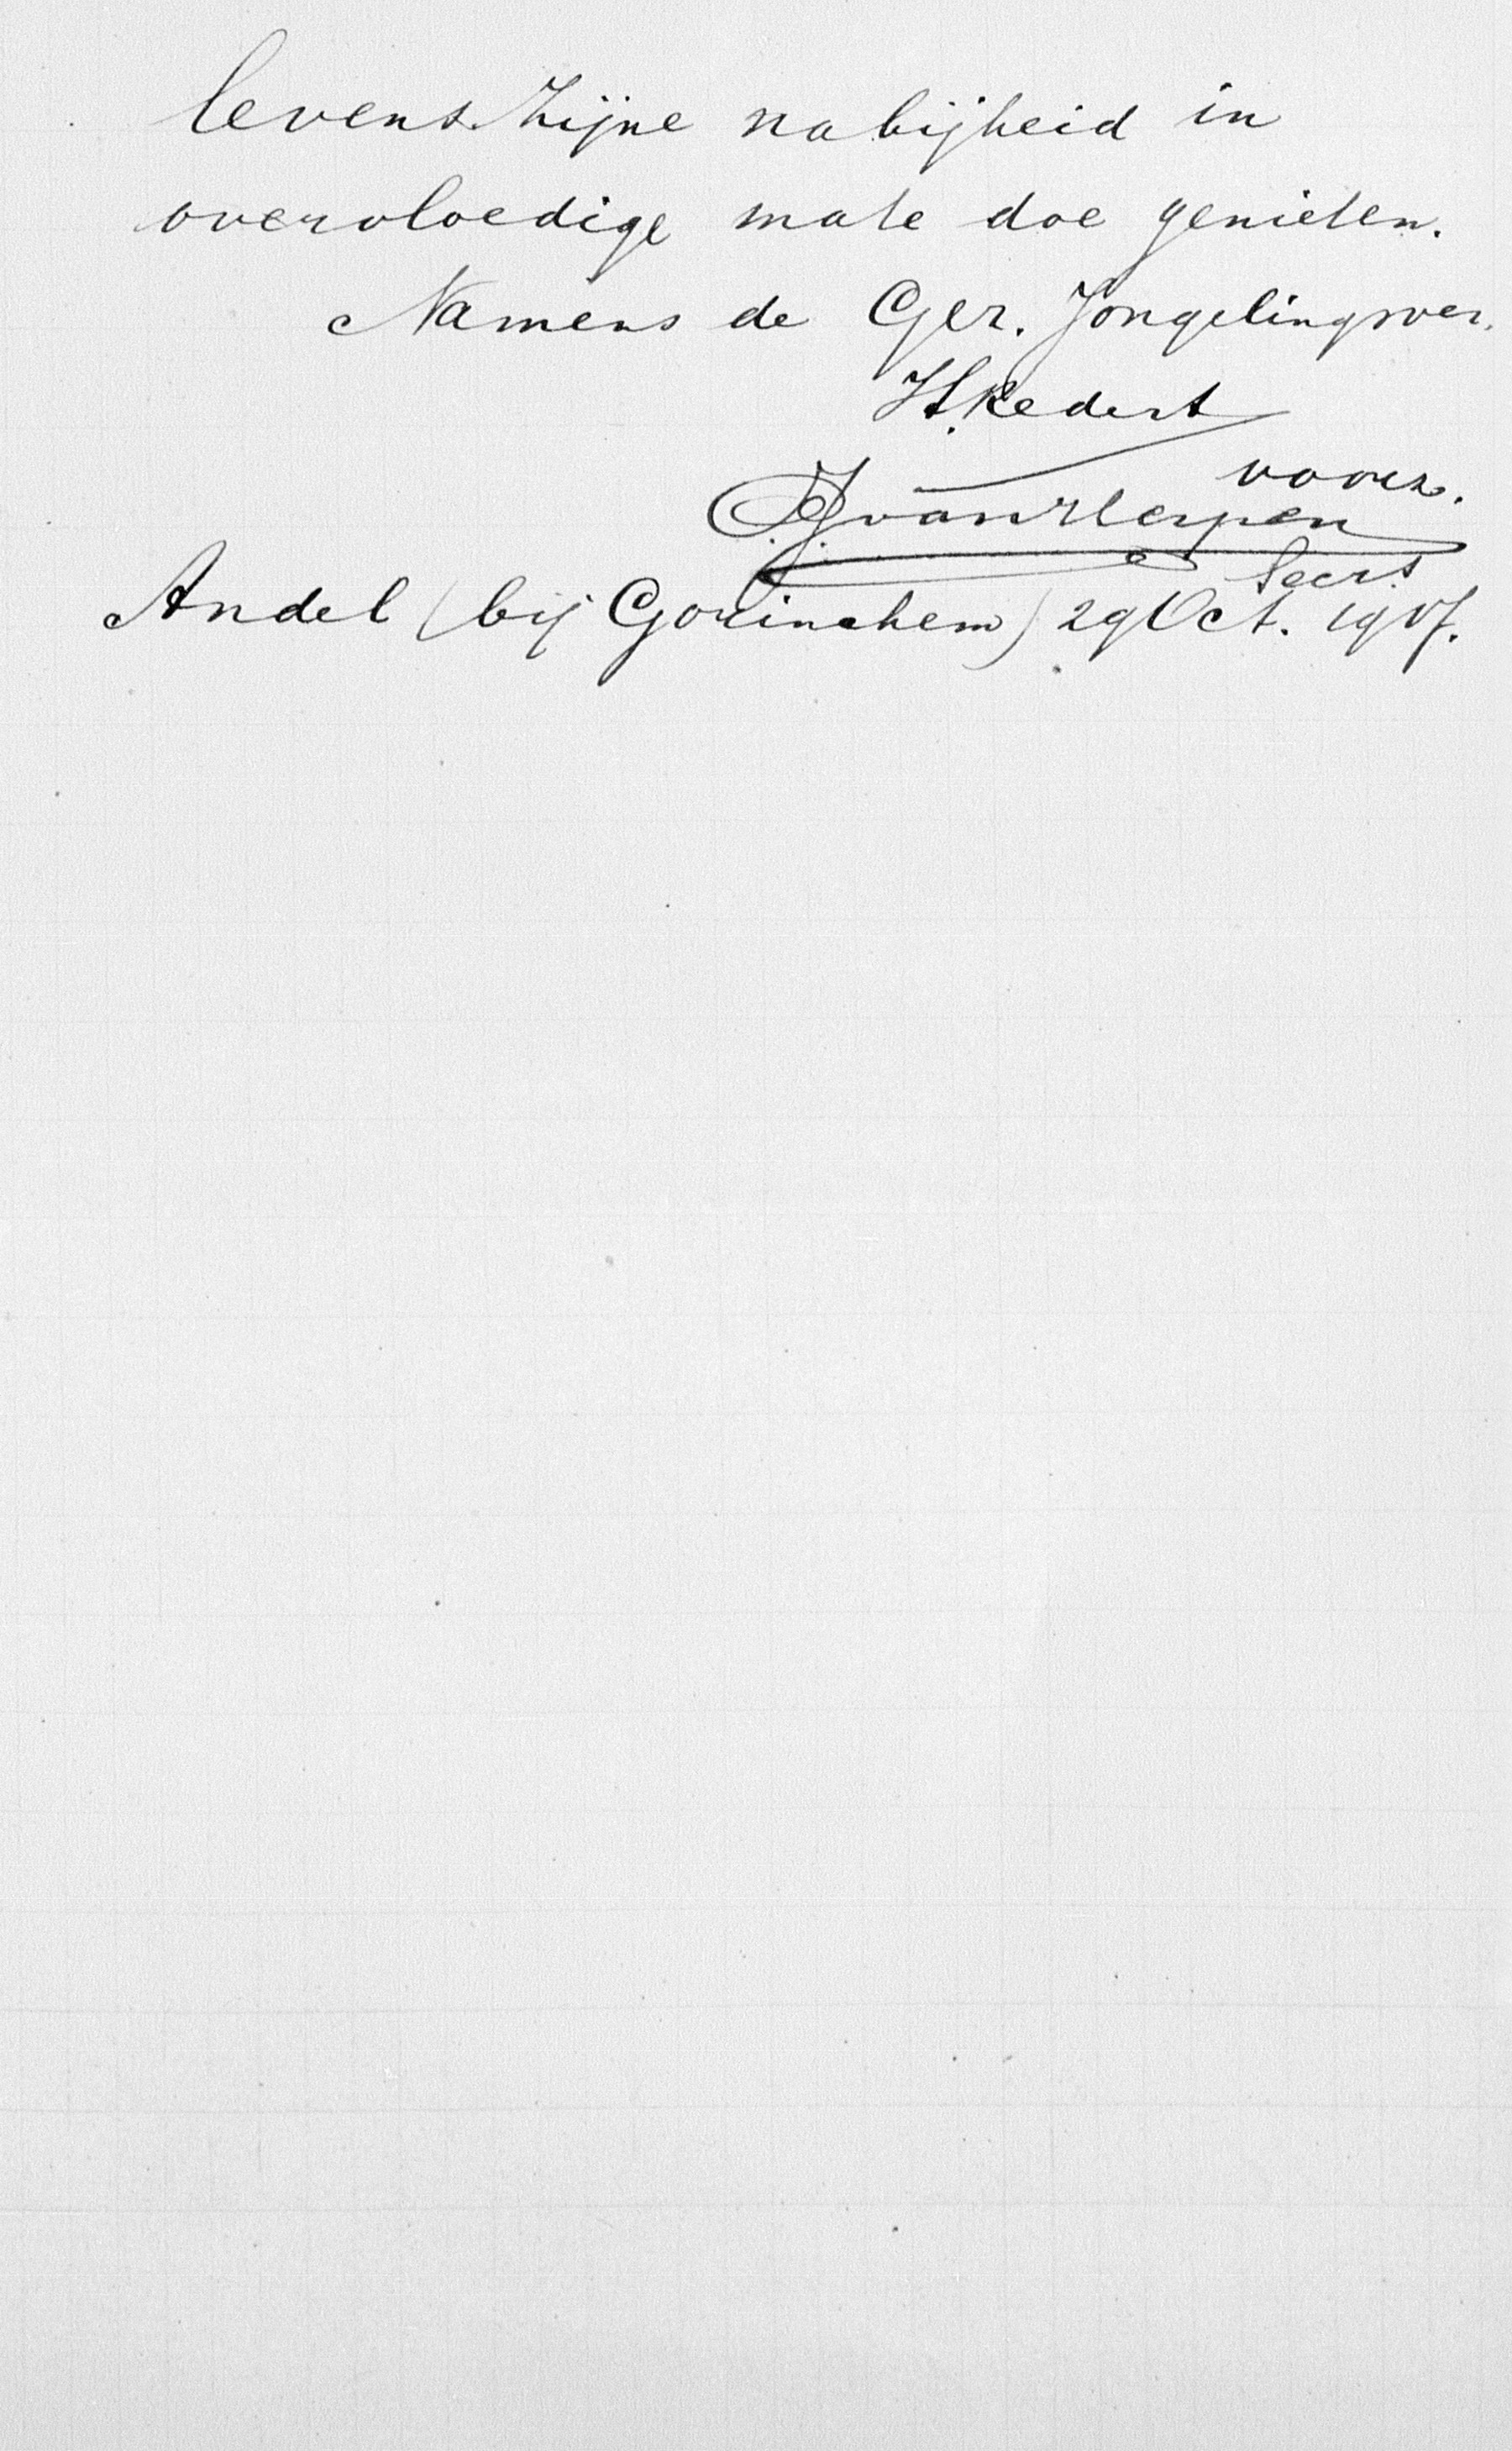 levens Zijne nabijheid in
overvloedige mate doe genieten.
Namens de Ger. Jongelingsver.
H. Kedert
voorz.
van
Secrs
Andel (bij Gorinchem) 29 Oct. 1907.